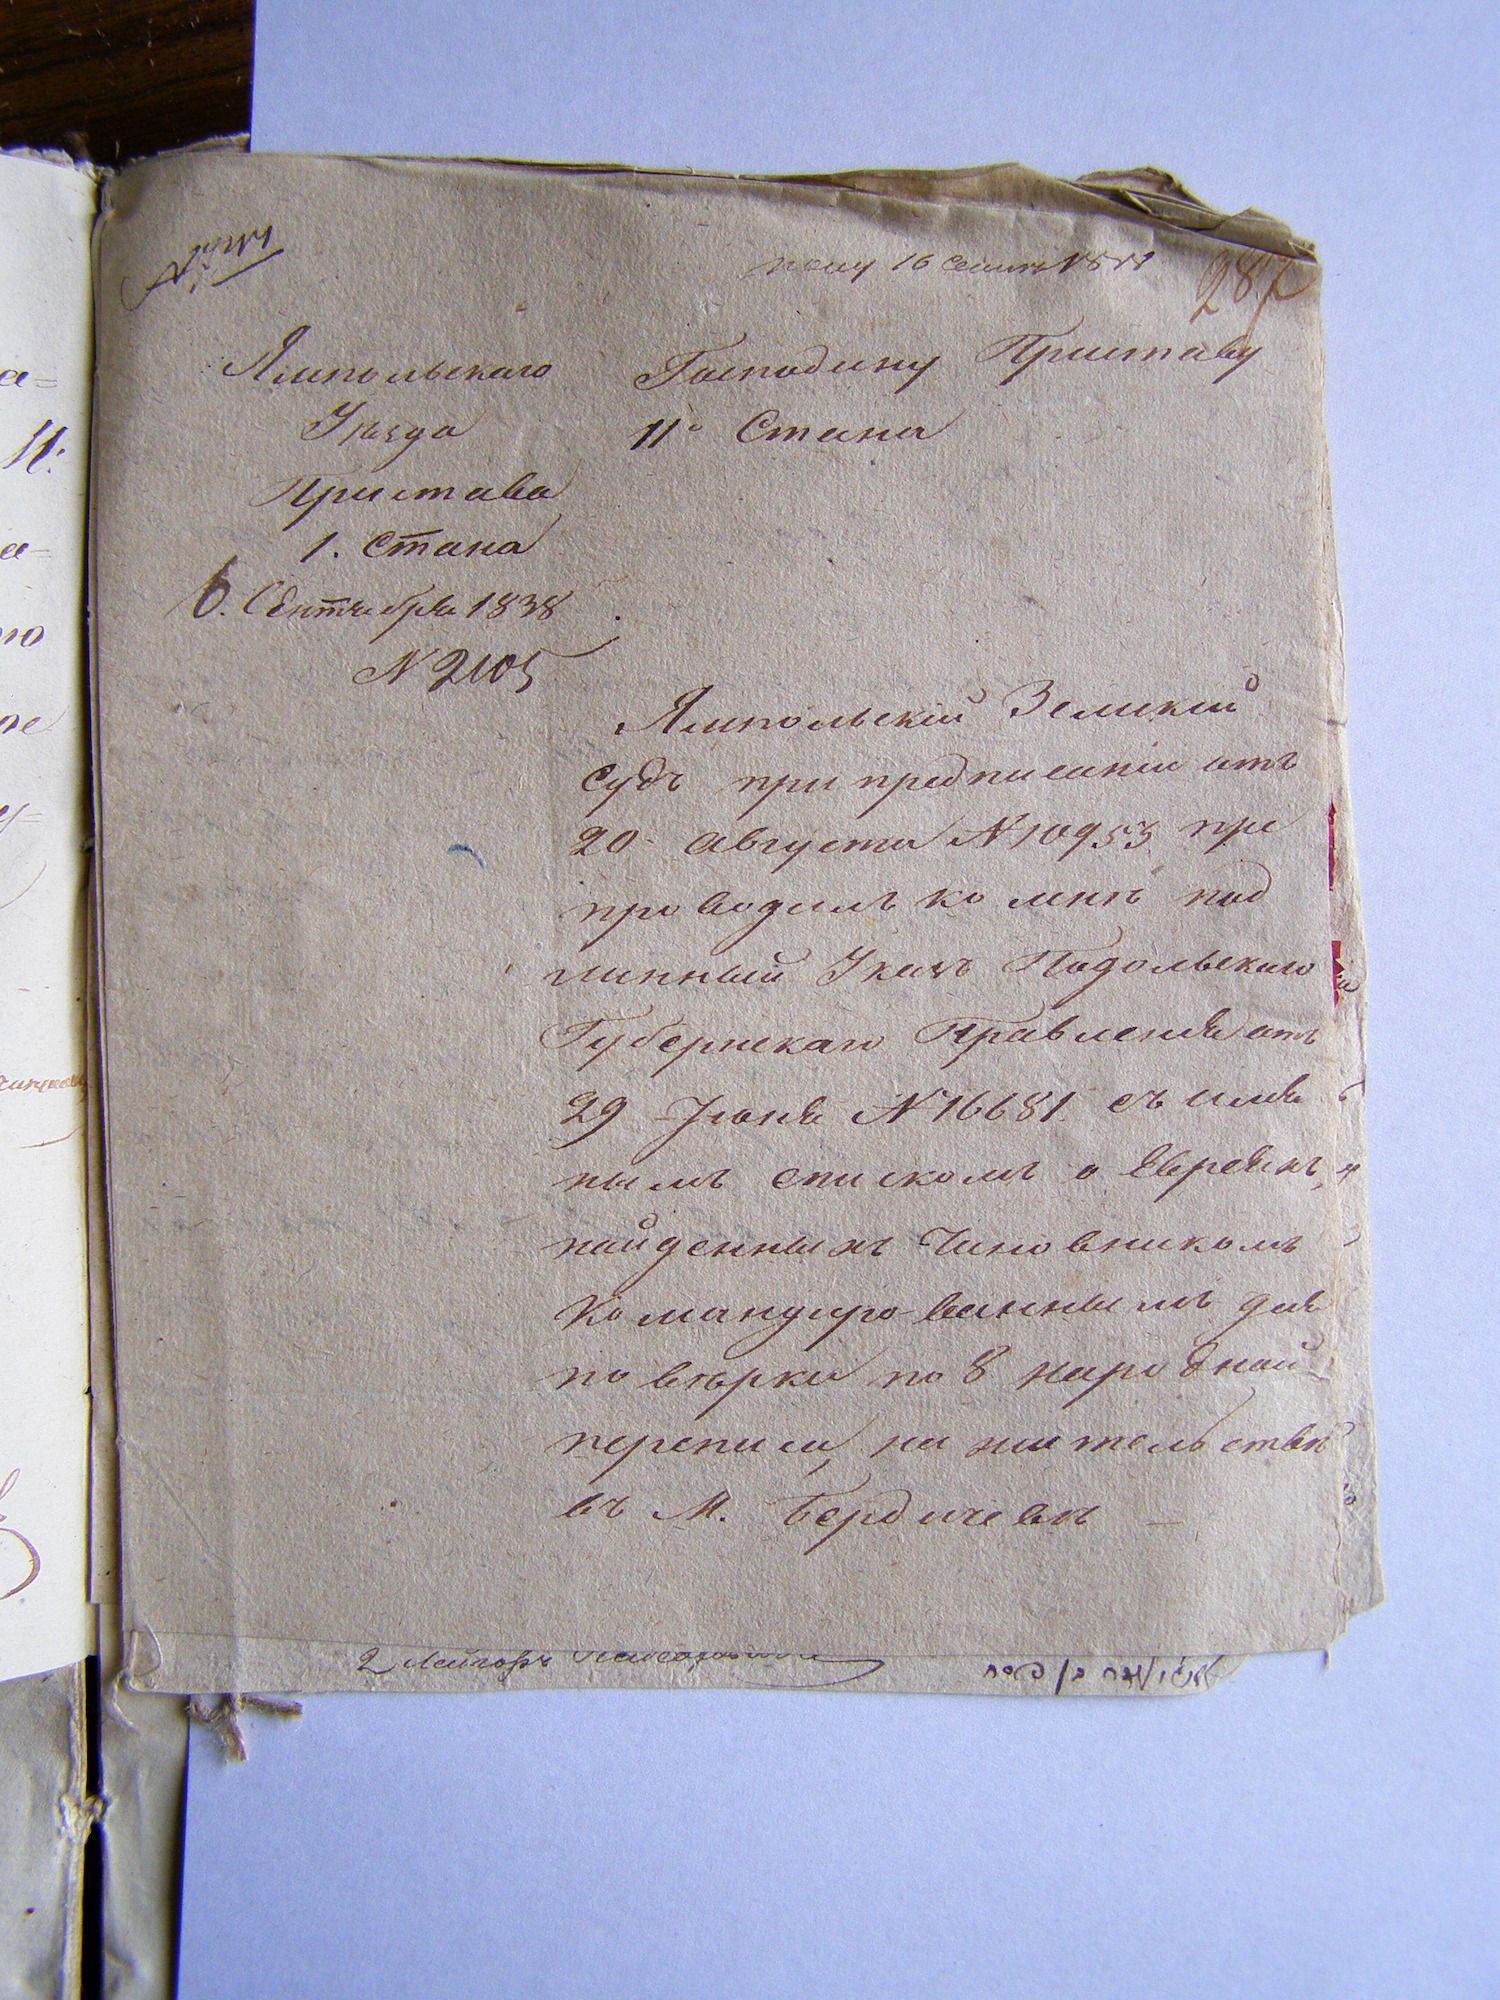 287
Ямпольскаго
Уѣзда
Пристава
1. Стана
6. Сентября 1838
N 2105
Господину Приставу
11º Стана
Ямпольскій Земскій
судъ при предписаніи отъ
20 августа N 10953 пре
проводилъ ко мнѣ под
линный Указъ Подольскаго
Губернскаго Правленія отъ
29 Іюня N 16681 съ имян
нымъ спискомъ о Евреяхъ,
найденныхъ Чиновникомъ
Командированнымъ для
повѣрки по 8 народной
переписи, на жительствѣ
въ М. Бердичевѣ —